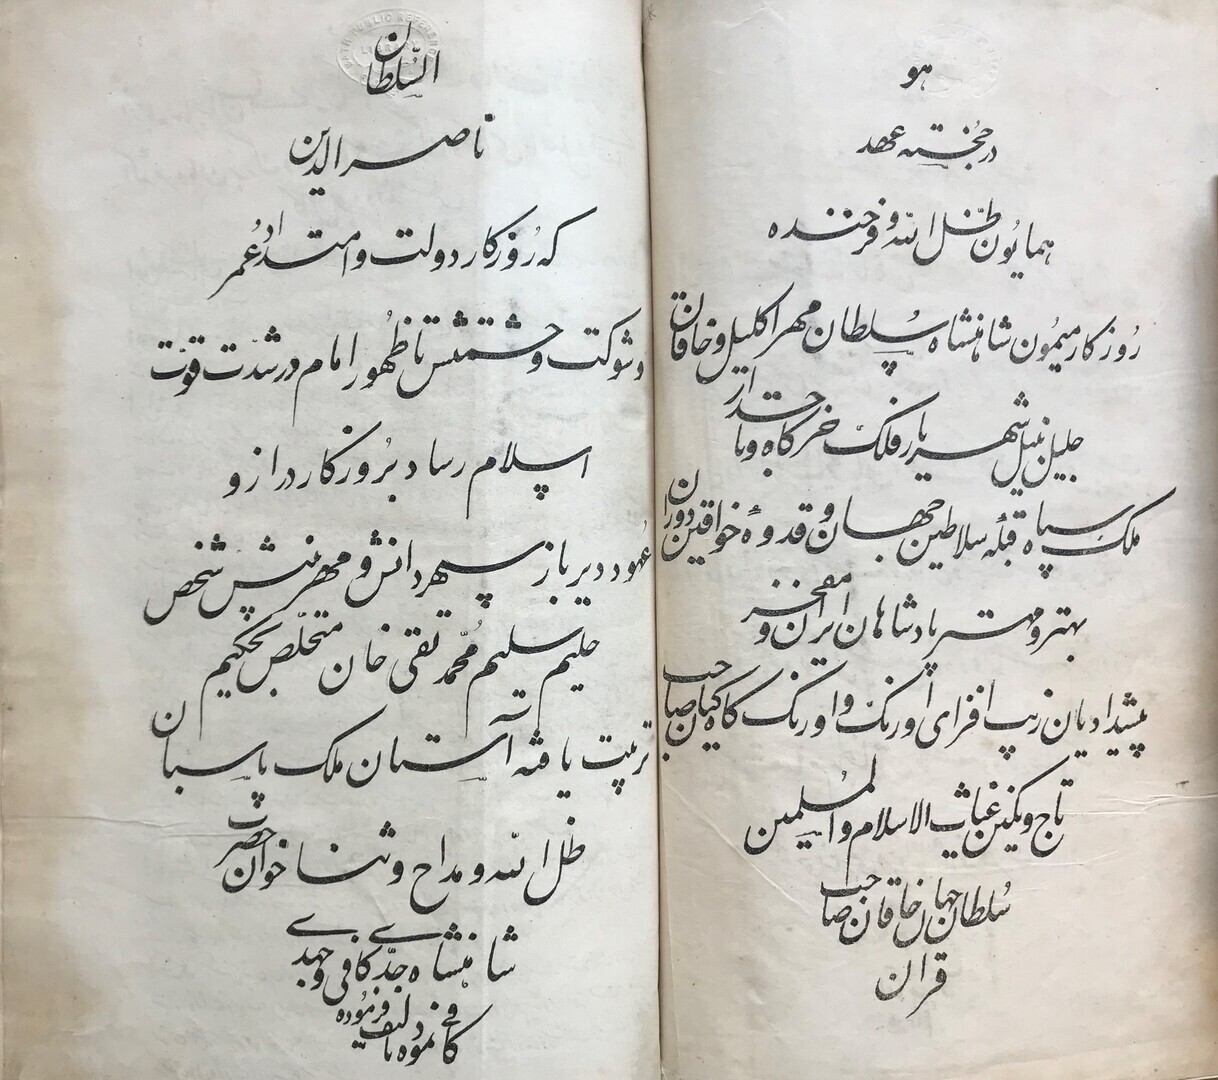 هو
در خجسته عهد
همایون ظل الله و فرخنده
روزکار میمون شاهنشاه سلطان مهر اکلیل و خاقان
جلیل نبیل شهریار فلک خرکاه و تاجدار
ملک سپاه قبلهٔ سلاطین جهان و قدوهٔ خواقین دوران
بهتر و مهتر پادشاهان ایران و مفخر
پیشدادیان زیب افزای اورنک و اورنک کاه کیان صاحب
تاج و نکین غیاث الاسلام و المسلمین
سلطان جهان خاقان صاحب
قران
السّلطان
ناصرالدین
که رُوزکار دولت و امتداد عُمر
و شوکت و حشمتش تا ظهور امام در شدّت قوّت
اسلام رساد بروزکار دراز و
عهود دیرباز سپهر دانش و مهر بینش شخص
حلیم سلیم مُحمّد تقی خان متخلّص بحکیم
تربیت یافتهٔ آستان ملک پاسبان
ظل الله و مداح و ثنا خوان حضرت
شاهنشاه جدّی کافی و جهدی
کافی نموده تالیف فرمُوده